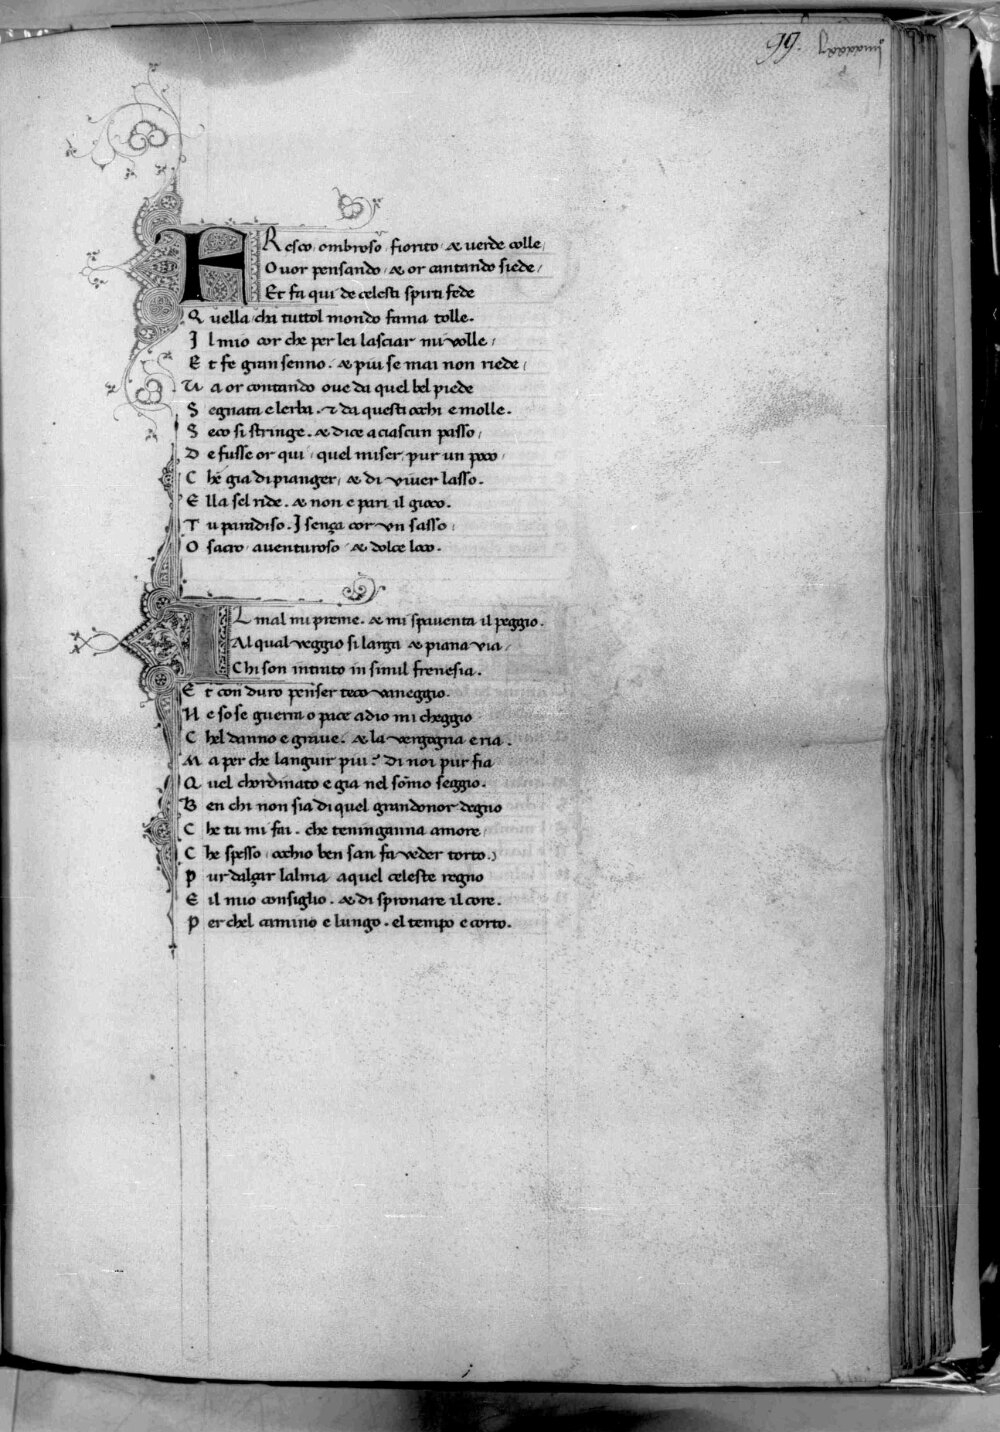 99.
FResco, ombroso, fiorito, & uerde colle,
Ouor pensando, & or cantando siede,
Et fa qui de celesti spiriti fede
Quella chi tuttol mondo fama tolle.
Il mio cor che per lei lasciar mi volle,
Et fe gran senno. & piu se mai non riede,
Va or contando oue da quel bel piede
Segnata e lerba. & da questi occhi e molle.
Seco si stringe. & dice a ciascun passo,
De fusse or qui, quel miser, pur un poco,
Che gia di pianger, & di viuer lasso.
Ella sel ride. & non e pari il gioco.
Tu paradiso. I sença cor vn sasso,
O sacro, auenturoso, & dolce loco.
IL mal mi preme. & mi spauenta il peggio.
Al qual veggio si larga & piana via,
Chi son intrato in simil frenesia.
Et con duro penser teco vaneggio.
Ne so se guerra o pace a dio mi cheggio
Chel danno e graue. & la vergogna e ria.
Ma per che languir piu? di noi pur fia
Quel chordinato e gia nel sõmo seggio.
Ben chi non sia di quel grandonor degno
Che tu mi fai. che teninganna amore,
Che spesso occhio ben san fa veder torto.
Pur dalçar lalma a quel celeste regno
E il mio consiglio. & di spronare il core.
Per chel camino e lungo. el tempo e corto.